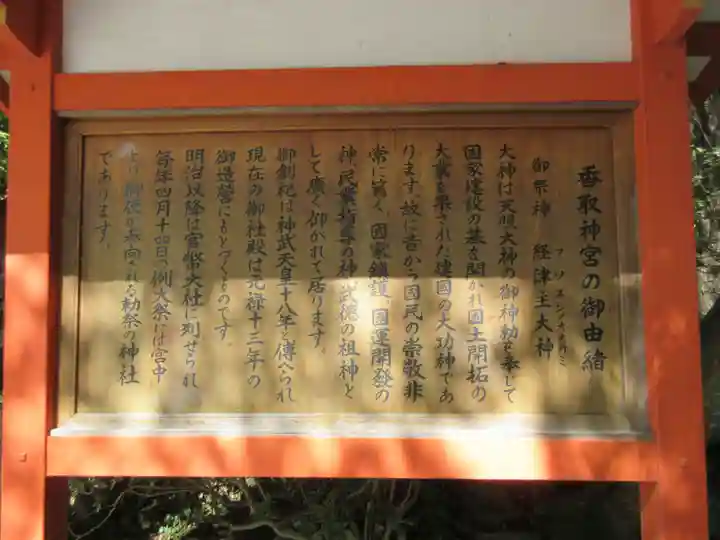 香取神宮の御由緒
御祭神 経津主大神
フツヌシノオオカミ
大神は天照大神の御神勅を奉じて
國家建設の基を開かれ國土開拓の
大業を果された建國の大功神であ
ります。故に昔から國民の崇敬非
常に篤く、國家鎮護、國運開發の
神、民業指導の神、武徳の祖神と
して廣く仰がれて居ります。
御創祀は神武天皇十八年と傳へられ
現在の御社殿は元禄十三年の
御造營にもとづくものです。
明治以降は官幣大社に列せられ
毎年四月十四日の例大祭には宮中
より御使が参向される勅祭の神社
であります。